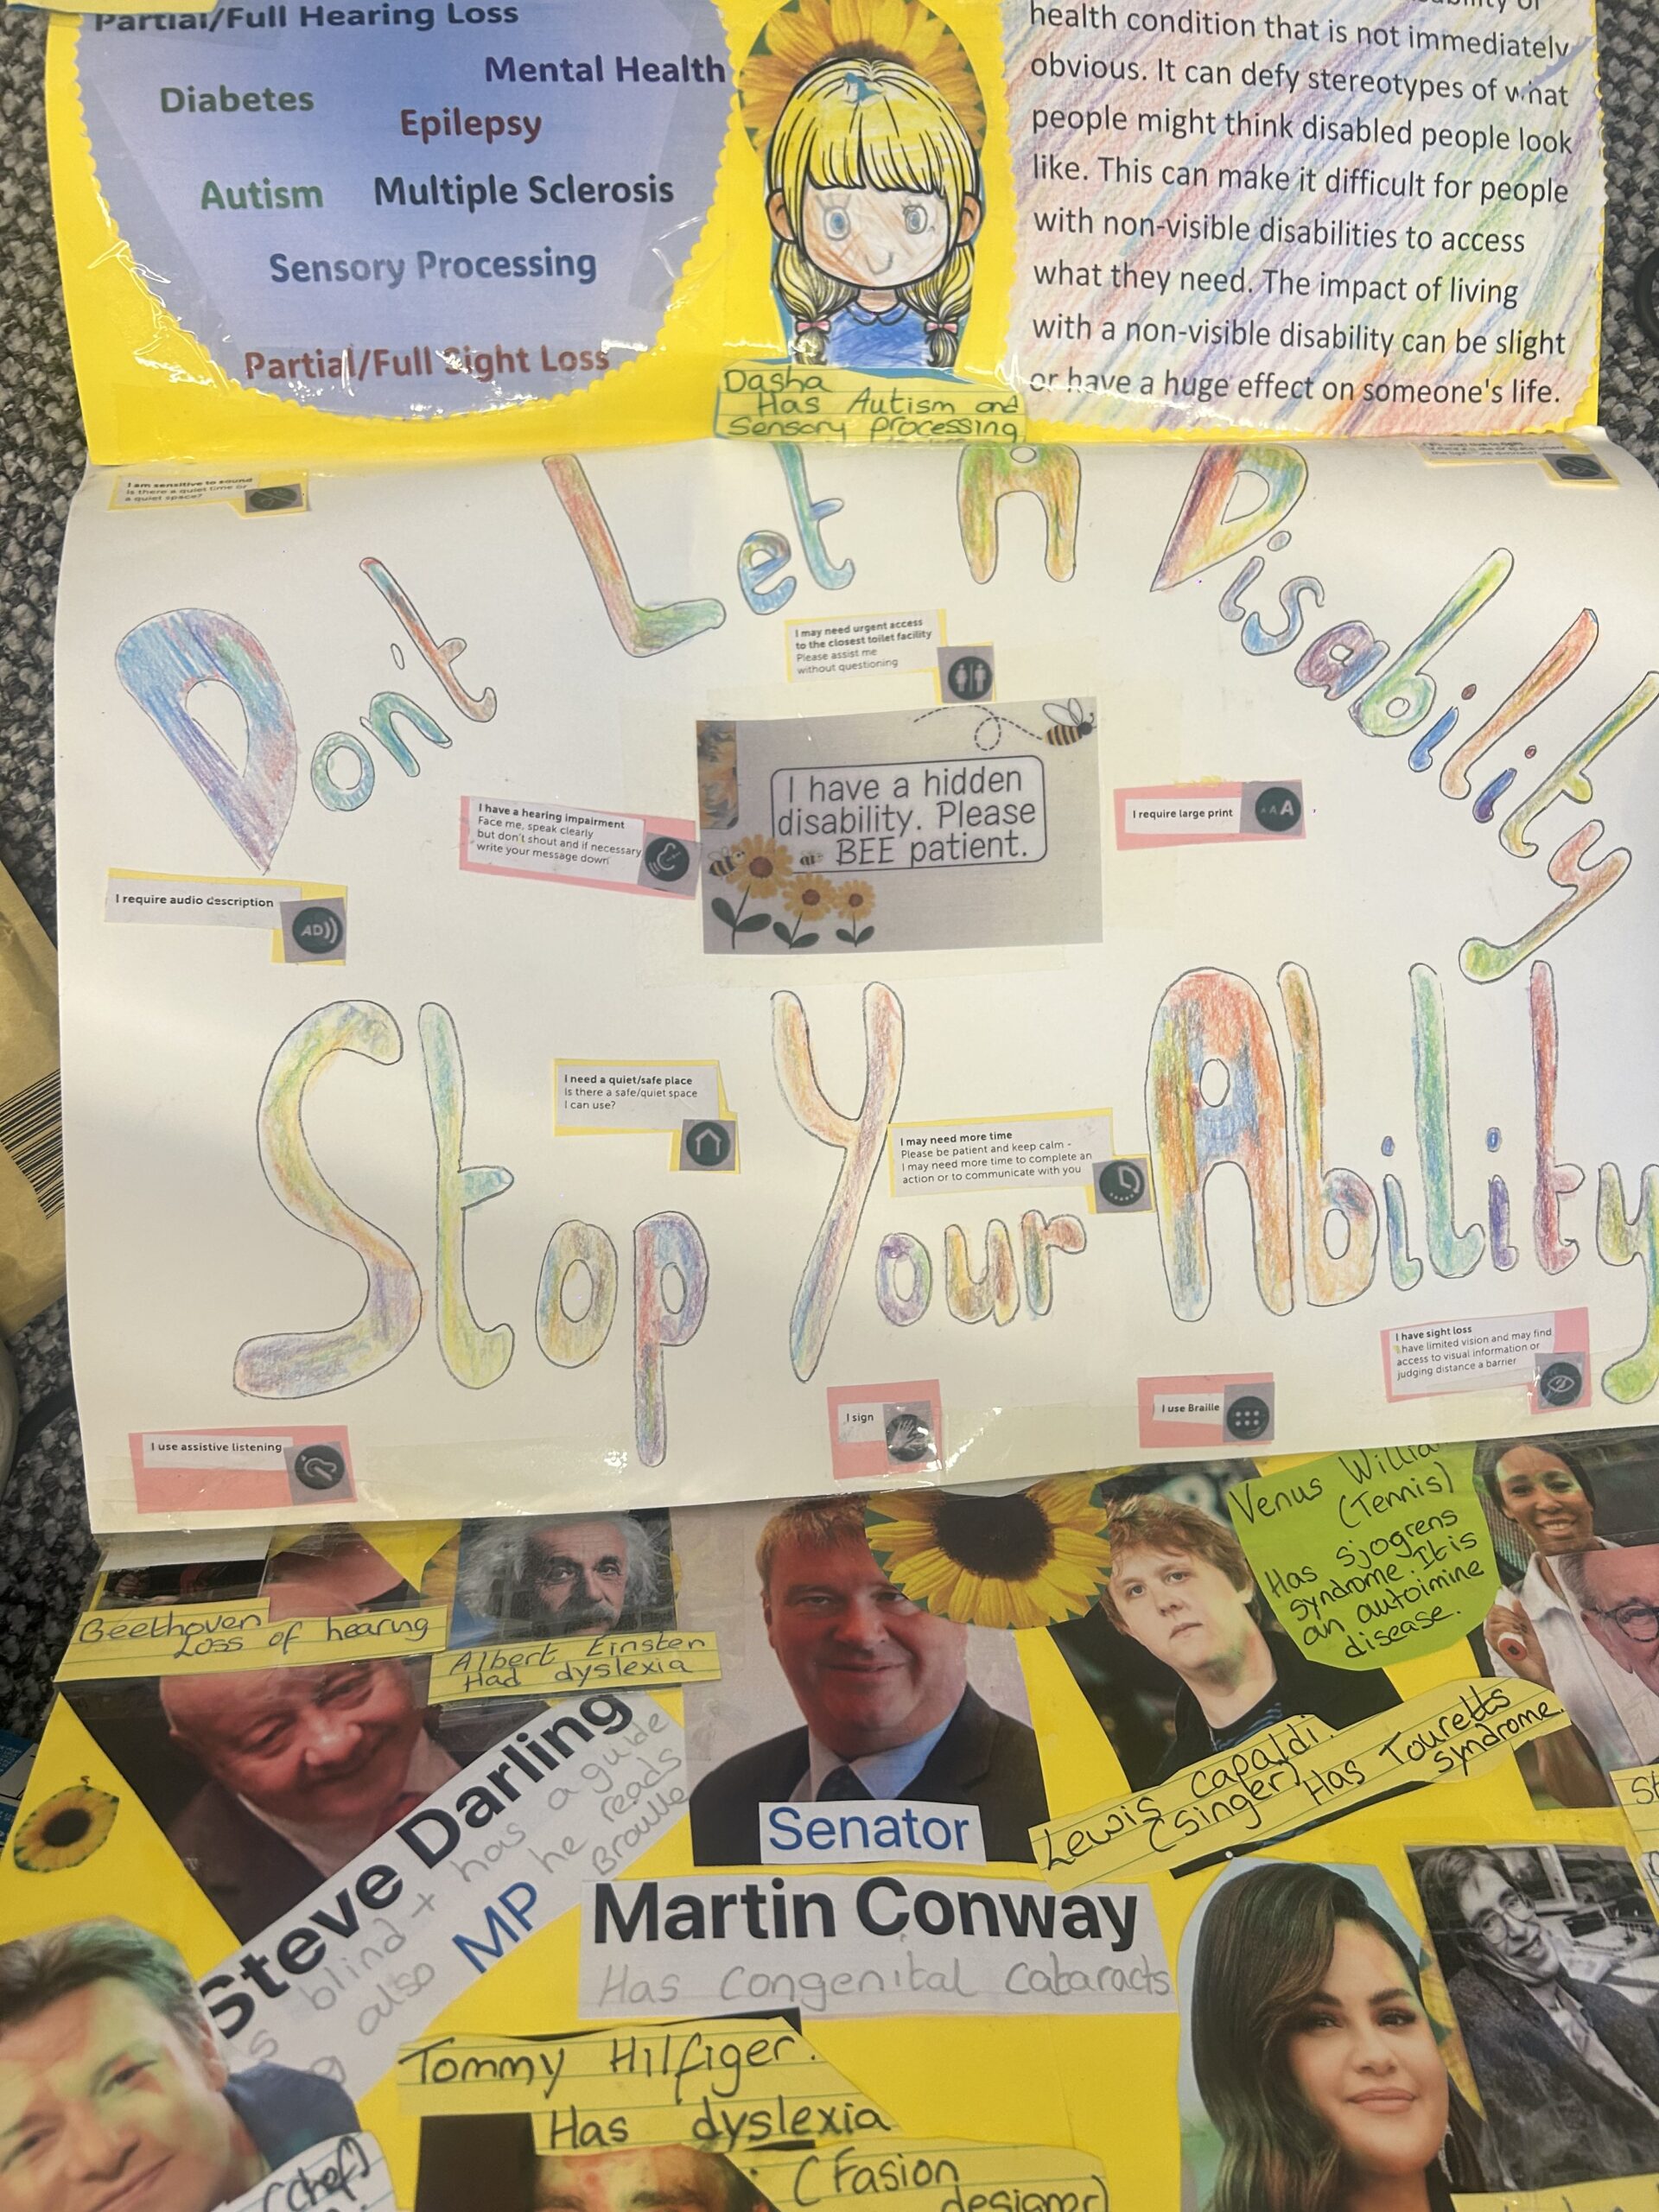 Partial/Full Hearing Loss
Mental Health
Diabetes
Epilepsy
Autism
Multiple Sclerosis
Sensory Processing
Partial/Full Sight Loss
Dasha
Has Autism and
Sensory Processing
health condition that is not immediately
obvious. It can defy stereotypes of what
people might think disabled people look
like. This can make it difficult for people
with non-visible disabilities to access
what they need. The impact of living
with a non-visible disability can be slight
or have a huge effect on someone's life.
I am sensitive to sound
Is there a quiet time or
a quiet space?
Don't Let A Disability
I may need urgent access
to the closest toilet facility
Please assist me
without questioning
I have a hidden
disability. Please
BEE patient.
I have a hearing impairment
Face me, speak clearly
but don't shout and if necessary
write your message down
I require large print
AAA
I require audio description
AD
Stop Your Ability
I need a quiet/safe place
Is there a safe/quiet space
I can use?
I may need more time
Please be patient and keep calm -
I may need more time to complete an
action or to communicate with you
I have sight loss
I have limited vision and may find
access to visual information or
judging distance a barrier
I use assistive listening
I sign
I use Braille
Venus Willia
(Tennis)
Has sjogrens
syndrome. It is
an autoimine
disease.
Beethoven
Loss of hearing
Albert Einsten
Had dyslexia
Steve Darling
blind + has a guide
also
MP
he reads
Braulle
Senator
Martin Conway
Has Congenital Cataracts
Lewis Capaldi.
(Singer)
Has Touretts
syndrome.
Tommy Hilfiger.
Has dyslexia
(Fasion
designer)
(chef)